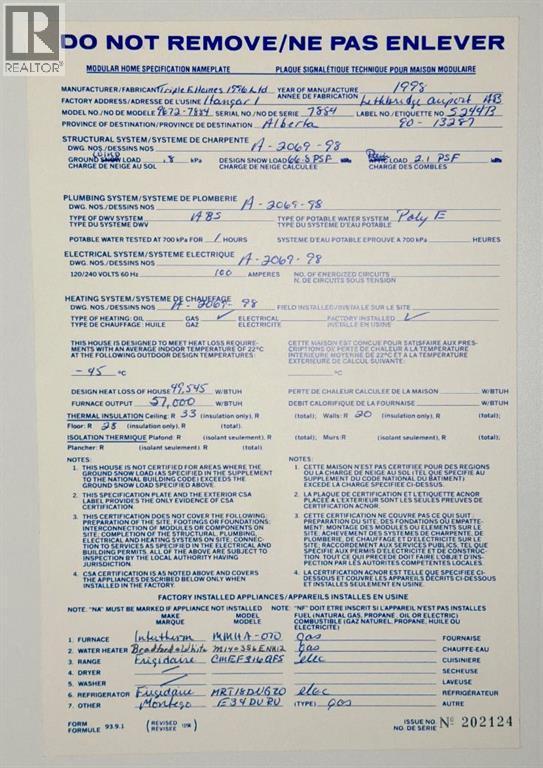 REALTOR®
DO NOT REMOVE/NE PAS ENLEVER
MODULAR HOME SPECIFICATION NAMEPLATE PLAQUE SIGNALÉTIQUE TECHNIQUE POUR MAISON MODULAIRE
MANUFACTURER/FABRICANT Triple E Homes 1996 Ltd YEAR OF MANUFACTURE 1998
ANNÉE DE FABRICATION
FACTORY ADDRESS/ADRESSE DE L'USINE Hangar 1 Lethbridge airport AB
MODEL NO./NO DE MODÈLE 9672-7884 SERIAL NO./NO DE SERIE 7884 LABEL NO./ETIQUETTE NO 5244B
PROVINCE OF DESTINATION/PROVINCE DE DESTINATION Alberta 90-13287
STRUCTURAL SYSTEM/SYSTEME DE CHARPENTE
DWG. NOS./DESSINS NOS A-2069-98
GROUND SNOW LOAD .8 kPa DESIGN SNOW LOAD 66.8 PSF LOAD 2.1 PSF
CHARGE DE NEIGE AU SOL CHARGE DE NEIGE CALCULEE CHARGE DES COMBLES
PLUMBING SYSTEM/SYSTEME DE PLOMBERIE
DWG. NOS./DESSINS NOS A-2069-98
TYPE OF DWV SYSTEM ABS TYPE OF POTABLE WATER SYSTEM Poly E
TYPE DU SYSTEME DWV TYPE DU SYSTEME D'EAU POTABLE
POTABLE WATER TESTED AT 700 kPa FOR 1 HOURS SYSTEME D'EAU POTABLE EPROUVE A 700 kPa HEURES
ELECTRICAL SYSTEM/SYSTEME ELECTRIQUE
DWG. NOS./DESSINS NOS A-2069-98
120/240 VOLTS 60 Hz 100 AMPERES NO. OF ENERGIZED CIRCUITS
N. DE CIRCUITS SOUS TENSION
HEATING SYSTEM/SYSTEME DE CHAUFFAGE
DWG. NOS./DESSINS NOS A-2069-98 FIELD INSTALLED/INSTALLE SUR LE SITE
TYPE OF HEATING: OIL GAS ✓ ELECTRICAL FACTORY INSTALLED ✓
TYPE DE CHAUFFAGE: HUILE GAZ ELECTRICITE INSTALLE EN USINE
THIS HOUSE IS DESIGNED TO MEET HEAT LOSS REQUIREMENTS WITH AN AVERAGE INDOOR TEMPERATURE OF 22°C AT THE FOLLOWING OUTDOOR DESIGN TEMPERATURES:
-45 °C
CETTE MAISON EST CONCUE POUR SATISFAIRE AUX PRESCRIPTIONS DE PERTE DE CHALEUR A LA TEMPERATURE INTERIEURE MOYENNE DE 22°C ET A LA TEMPERATURE EXTERIEURE DE CALCUL SUIVANTE:
°C
DESIGN HEAT LOSS OF HOUSE 49,545 W/BTUH PERTE DE CHALEUR CALCULEE DE LA MAISON W/BTUH
FURNACE OUTPUT 57,000 W/BTUH DEBIT CALORIFIQUE DE LA FOURNAISE W/BTUH
THERMAL INSULATION Ceiling: R 33 (insulation only), R (total); Walls: R 20 (insulation only), R (total);
Floor: R 28 (insulation only), R (total).
ISOLATION THERMIQUE Plafond: R (isolant seulement), R (total); Murs: R (isolant seulement), R (total);
Plancher: R (isolant seulement), R (total).
NOTES:
1. THIS HOUSE IS NOT CERTIFIED FOR AREAS WHERE THE GROUND SNOW LOAD (AS SPECIFIED IN THE SUPPLEMENT TO THE NATIONAL BUILDING CODE) EXCEEDS THE GROUND SNOW LOAD SPECIFIED ABOVE.
2. THIS SPECIFICATION PLATE AND THE EXTERIOR CSA LABEL PROVIDE THE ONLY EVIDENCE OF CSA CERTIFICATION.
3. THIS CERTIFICATION DOES NOT COVER THE FOLLOWING: PREPARATION OF THE SITE, FOOTINGS OR FOUNDATIONS; INTERCONNECTION OF MODULES OR COMPONENTS ON SITE; COMPLETION OF THE STRUCTURAL, PLUMBING, ELECTRICAL AND HEATING SYSTEMS ON SITE; CONNECTION TO SERVICES AS SPECIFIED IN THE ELECTRICAL AND BUILDING PERMITS. ALL OF THE ABOVE ARE SUBJECT TO INSPECTION BY THE LOCAL AUTHORITY HAVING JURISDICTION.
4. CSA CERTIFICATION IS AS NOTED ABOVE AND COVERS THE APPLIANCES DESCRIBED BELOW ONLY WHEN INSTALLED IN THE FACTORY.
NOTES:
1. CETTE MAISON N'EST PAS CERTIFIEE POUR DES REGIONS OU LA CHARGE DE NEIGE AU SOL (TEL QUE SPECIFIE AU SUPPLEMENT DU CODE NATIONAL DU BÂTIMENT) EXCEDE LA CHARGE SPECIFIEE CI-DESSUS.
2. LA PLAQUE DE CERTIFICATION ET L'ETIQUETTE ACNOR PLACEE A L'EXTERIEUR SONT LES SEULES PREUVES DE CERTIFICATION ACNOR.
3. CETTE CERTIFICATION NE COUVRE PAS CE QUI SUIT: PREPARATION DU SITE, DES FONDATIONS OU EMPATTEMENT; MONTAGE DES MODULES OU ELEMENTS SUR LE SITE; ACHEVEMENT DES SYSTEMES DE CHARPENTE, DE PLOMBERIE, DE CHAUFFAGE ET D'ELECTRICITE SUR LE SITE; RACCORDEMENT AUX SERVICES TEL QUE SPECIFIE AUX PERMIS D'ELECTRICITE ET DE CONSTRUCTION. TOUT CE QUI PRECEDE DOIT FAIRE L'OBJET D'INSPECTION PAR LES AUTORITES COMPETENTES LOCALES.
4. LA CERTIFICATION ACNOR EST TELLE QUE SPECIFIEE CI-DESSOUS ET COUVRE LES APPAREILS DECRITS CI-DESSOUS ET INSTALLES SEULEMENT EN USINE.
FACTORY INSTALLED APPLIANCES/APPAREILS INSTALLES EN USINE
NOTE: "NA" MUST BE MARKED IF APPLIANCE NOT INSTALLED NOTE: "NF" DOIT ETRE INSCRIT SI L'APPAREIL N'EST PAS INSTALLE
MAKE MODEL FUEL (NATURAL GAS, PROPANE, OIL OR ELECTRIC)
MARQUE MODELE COMBUSTIBLE (GAZ NATUREL, PROPANE, HUILE OU ELECTRICITE)
1. FURNACE Intertherm MMHA-070 gas FOURNAISE
2. WATER HEATER Bradford White gas CHAUFFE-EAU
3. RANGE Frigidaire elec CUISINIERE
4. DRYER SÉCHEUSE
5. WASHER LAVEUSE
6. REFRIGERATOR Frigidaire elec RÉFRIGÉRATEUR
7. OTHER Montego E34DURU (TYPE) gas AUTRE
FORM 93.9.1 (REVISED)
FORMULE (RÉVISÉE)
ISSUE NO. Nº 202124
NO. DE SÉRIE